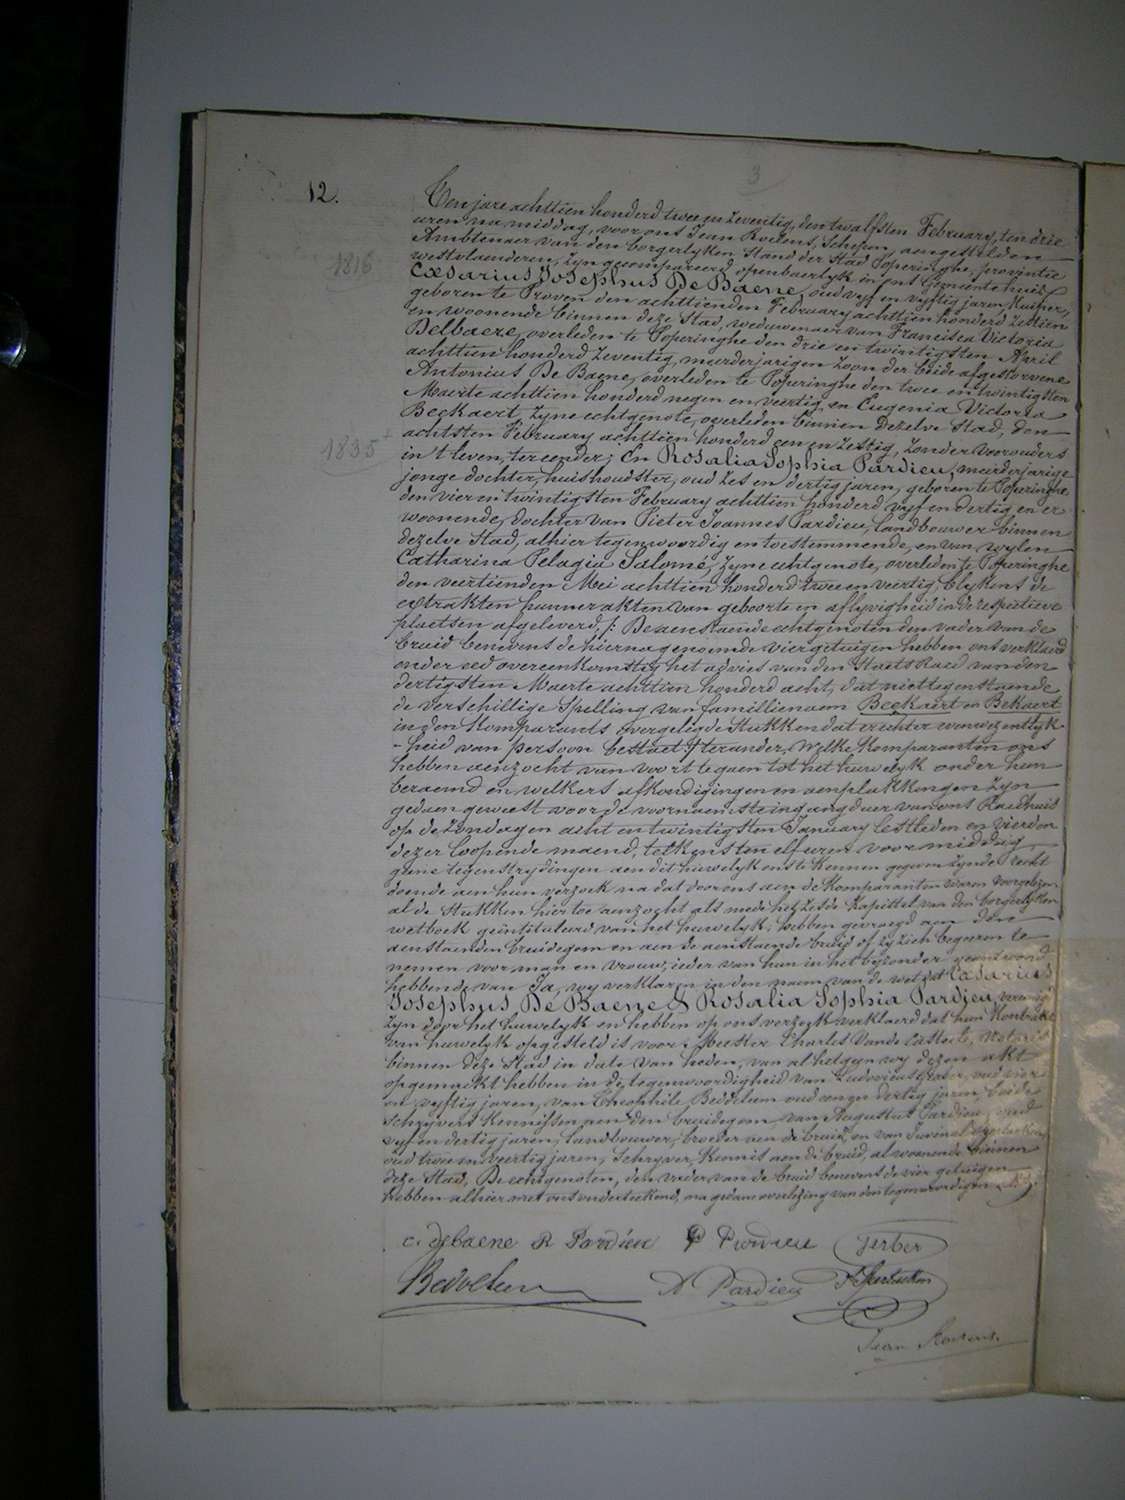 3
12.
Ten jare achttien honderd twee en Zeventig, den twalfsten February, ten drie
uren na middag, voor ons Jean Roelens, Schepen, aengestelden
Ambtenaer van den borgerlyken Stand der Stad Poperinghe, provintie
westvlaenderen, zyn gecompareerd openbaerlyk in ons Gemeentehuis
1816
Cæsarius Josephus De Baene, oud vyf en vyftig jaren, Kuiper,
geboren te Proven den achttienden February achttien honderd Zestien
en woonende binnen deze Stad, weduwenaer van Francisca Victoria
Delbaere, overleden te Poperinghe den drie en twintigsten April
achttien honderd Zeventig, meerderjarigen Zoon der beide afgestorvene
Antonius De Baene, overleden te Poperinghe den twee en twintigsten
Maerte achttien honderd negen en veertig en Eugenia Victoria
Beckaert, Zyne echtgenote, overleden binnen dezelve Stad, den
achtsten February achttien honderd een en Zestig, Zonder Voorouders
1835
in 't leven, ter eender; En Rosalia Sophia Pardieu, meerderjarige
jonge dochter, huishoudster, oud Zes en dertig jaren, geboren te Poperinghe
den vier en twintigsten February achttien honderd vyf en dertig en er
woonende, dochter van Pieter Joannes Pardieu, Landbouwer binnen
dezelve Stad, alhier tegenwoordig en toestemmende, en van wylen
Catharina Pelagia Salomé, Zyne echtgenote, overleden te Poperinghe
den veertienden Mei achttien honderd twee en veertig, blykens de
extrakten hunner akten van geboorte en aflyvigheid in de respectieve
plaetsen afgeleverd, /: De aenstaende echtgenoten den vader van de
bruid benevens de hierna genoemde vier getuigen hebben ons verklaerd
onder eed overeenkomstig het advies van den Staets Raed van den
dertigsten Maerte achttien honderd acht, dat niettegenstaende
de verschillige Spelling van familienaem Beckaert en Bekaert
in den Komparants overgelegde Stukken dat er echter eenwezentlyk-
-heid van persoon bestaet :/ ter ander, Welke Komparanten ons
hebben aenzocht van voort te gaen tot het huwelyk onder hun
beraemd en welkers afkondigingen en aenplakkingen Zyn
gedaen geweest voor de voornaemste ingangdeur van ons Raedhuis
op de Zondagen acht en twintigsten January lestleden en vierden
dezer loopende maend, telkens ten elf uren voor middag,
geene tegenstrydingen aen dit huwelyk ons te kennen gegeven Zynde recht
doende aen hun verzoek na dat door ons aen de Komparanten waren voorgelezen
al de Stukken hier toe aenzocht als mede het Zesde Kapittel van den borgerlyken
wetboek geïntituleerd van het huwelyk, hebben gevraegd aen den
aenstaenden bruidegom en aen de aenstaende bruid of zy zich begeeren te
nemen voor man en vrouw; ieder van hun in het byzonder geantwoord
hebbende van Ja, wy verklaren in den naem van de wet dat Cæsarius
Josephus De Baene & Rosalia Sophia Pardieu, vereenigd
Zyn door het huwelyk en hebben op ons verzoek verklaerd dat hun Kontrakt
van huwelyk opgesteld is voor Meester Charles Vande Casteele, Notaris
binnen deze Stad in date van heden, van al hetgeen wy dezen akt
opgemaekt hebben in de tegenwoordigheid van Ludovicus oud vier
en vyftig jaren, van Theophile Bedelem oud een en dertig jaren, beide
Schryvers Kennissen aen den bruidegom, van Augustus Pardieu, oud
vyf en dertig jaren, Landbouwer, broeder aen de bruid, en van
oud twee en veertig jaren, Schryver, Kennis aen de bruid, al woonende binnen
deze Stad, De echtgenoten, den vader van de bruid benevens de vier getuigen
hebben alhier met ons onderteekend, na gedane overlezing van den tegenwoordigen
c. debaene R Pardieu P Pardieu
A Pardieu
Jean Roelens.